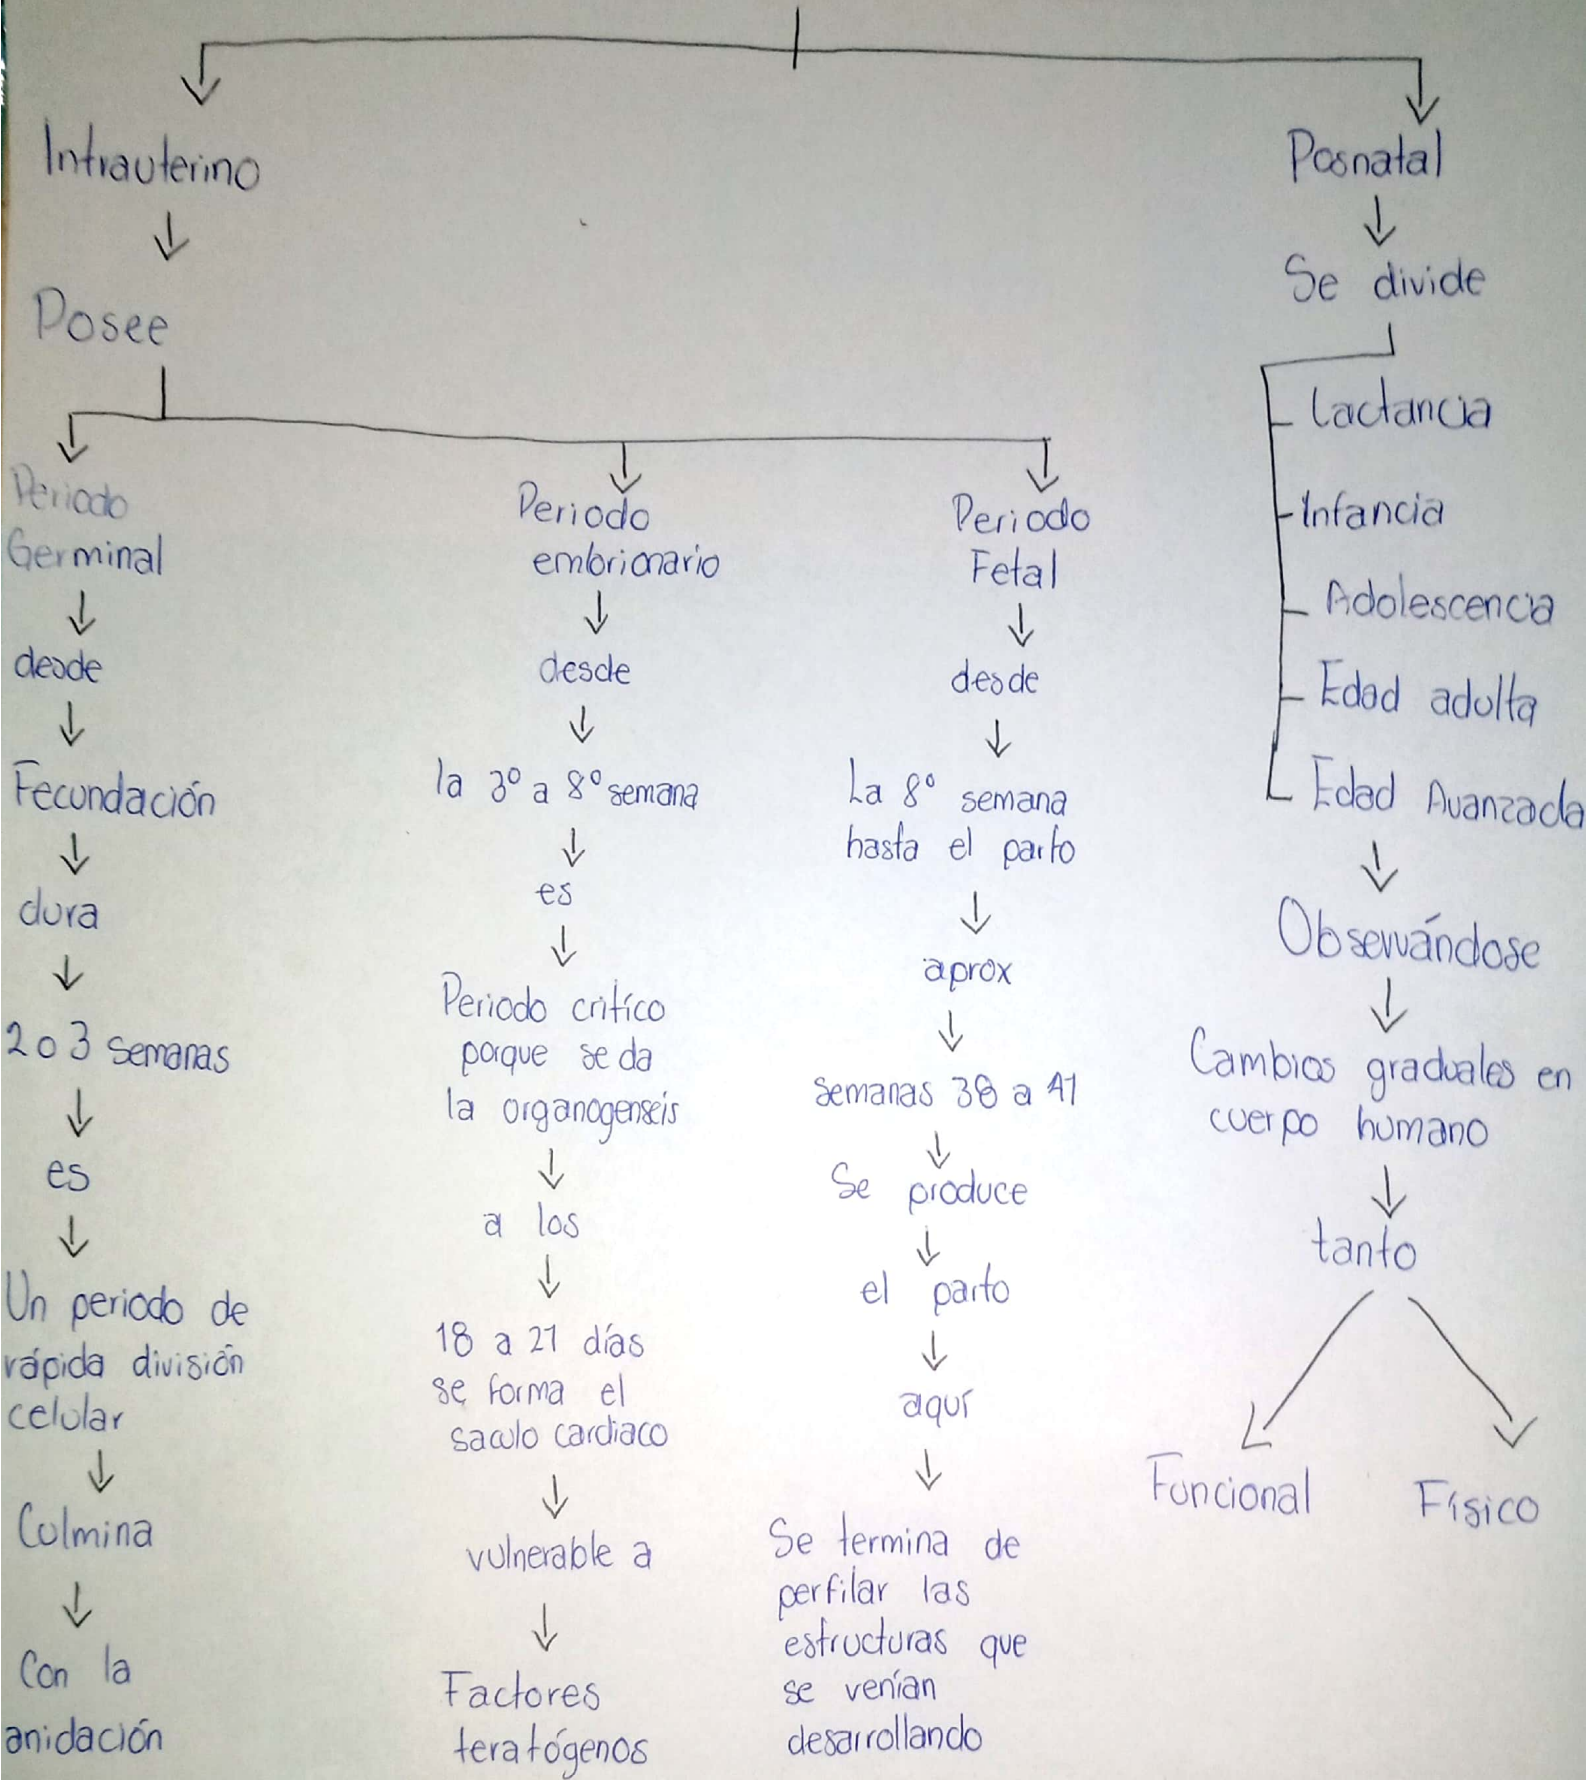 Intrauterino
Posee
Periodo
Germinal
desde
Fecundación
dura
2 o 3 semanas
es
Un periodo de
rápida división
celular
Culmina
Con la
anidación
Periodo
embrionario
desde
la 3º a 8º semana
es
Periodo critíco
porque se da
la organogenseis
a los
18 a 21 días
se forma el
saculo cardiaco
vulnerable a
Factores
teratógenos
Periodo
Fetal
desde
La 8º semana
hasta el parto
aprox
semanas 38 a 41
Se produce
el parto
aquí
Se termina de
perfilar las
estructuras que
se venían
desarrollando
Posnatal
Se divide
Lactancia
Infancia
Adolescencia
Edad adulta
Edad Avanzada
Observándose
Cambios graduales en
cuerpo humano
tanto
Funcional
Físico